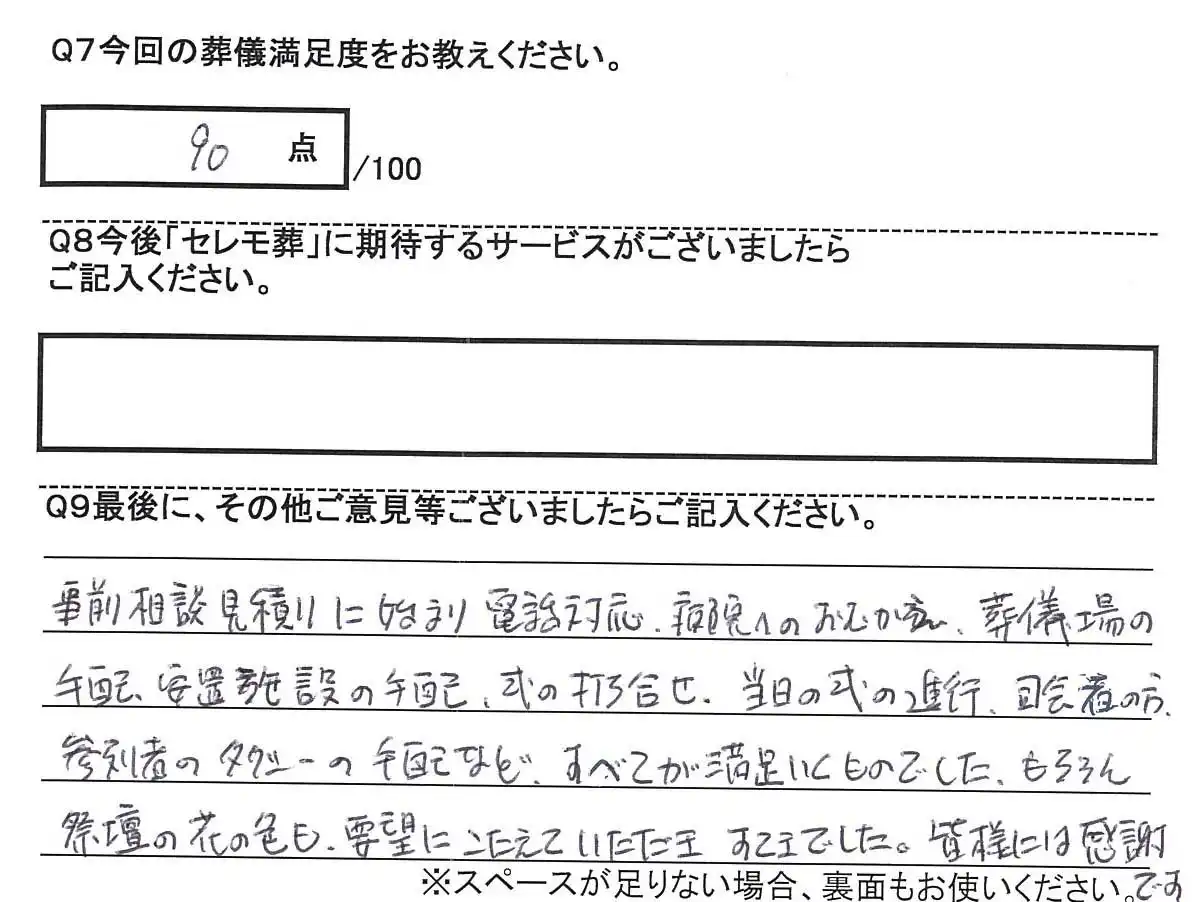 Q7今回の葬儀満足度をお教えください。
90 点
/100
Q8今後「セレモ葬」に期待するサービスがございましたら
ご記入ください。
Q9最後に、その他ご意見等ございましたらご記入ください。
事前相談見積りに始まり電話対応、病院へのおむかえ、葬儀場の
手配、安置施設の手配、式の打ち合せ、当日の式の進行、司会者の方、
参列者のタクシーの手配など、すべてが満足いくものでした、もちろん
祭壇の花の色も、要望にこたえていただき でした。皆様には感謝
※スペースが足りない場合、裏面もお使いください。です